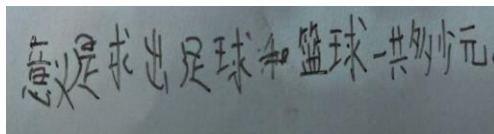 意义是求出足球和篮球一共多少元.